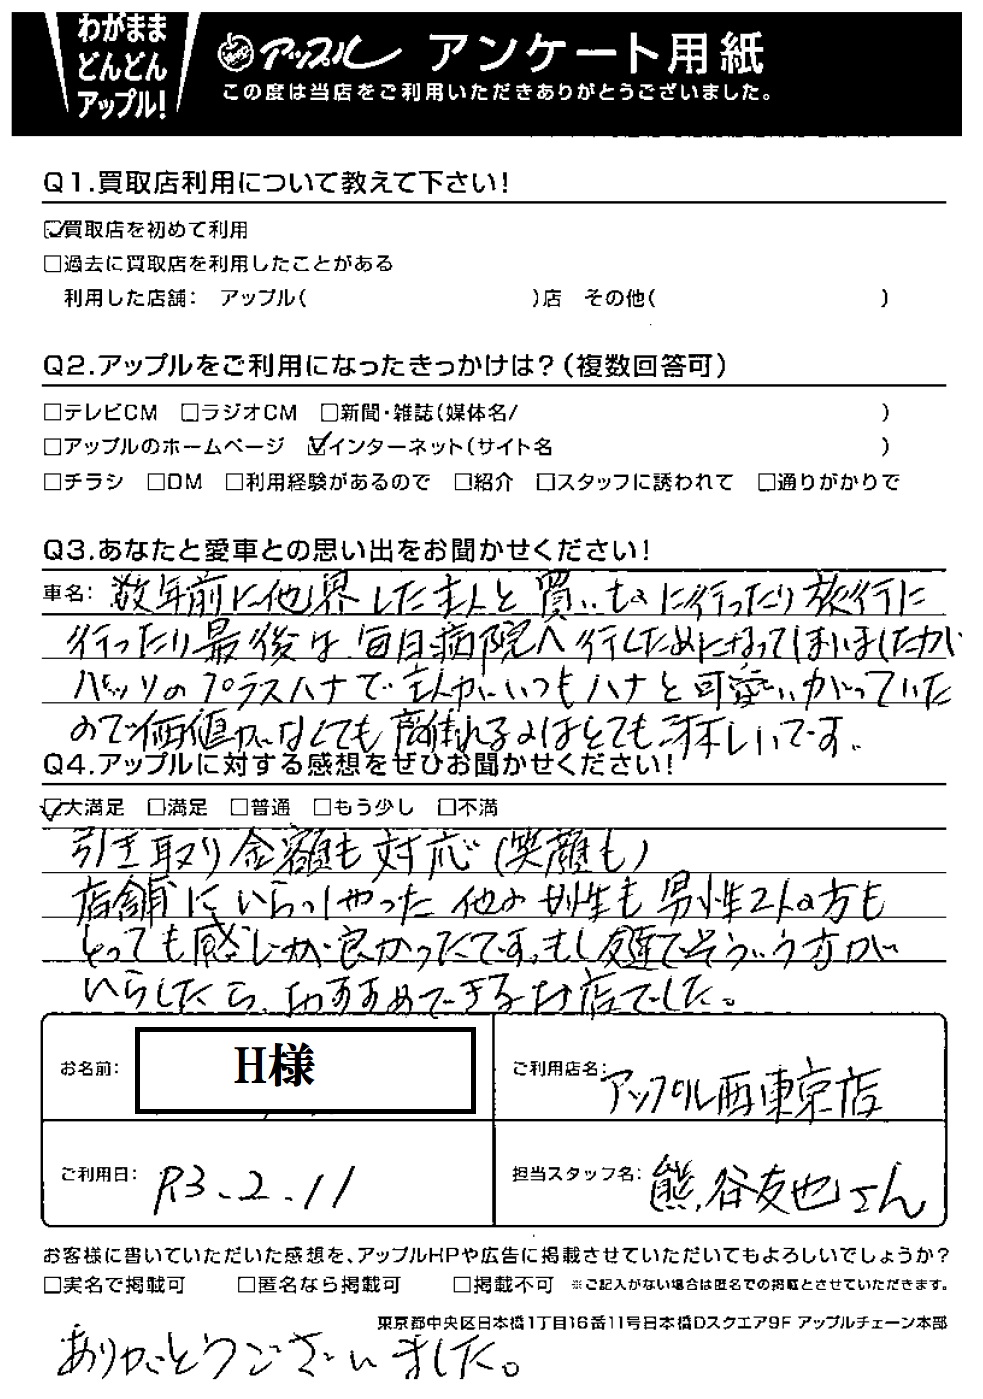 わがまま
どんどん
アップル!
アップル アンケート用紙
この度は当店をご利用いただきありがとうございました。
Q1.買取店利用について教えて下さい!
☑買取店を初めて利用
□過去に買取店を利用したことがある
利用した店舗: アップル( )店 その他( )
Q2.アップルをご利用になったきっかけは?(複数回答可)
□テレビCM □ラジオCM □新聞・雑誌(媒体名/ )
□アップルのホームページ ☑インターネット(サイト名 )
□チラシ □DM □利用経験があるので □紹介 □スタッフに誘われて □通りがかりで
Q3.あなたと愛車との思い出をお聞かせください!
車名: 数年前に他界した主人と買いものに行ったり旅行に
行ったり最後は毎日病院へ行くためになってしまいましたが
ハッソのプラスハナで主人がいつもハナと可愛いがっていた
ので価値がなくても離れるのはとても淋しいです。
Q4.アップルに対する感想をぜひお聞かせください!
☑大満足 □満足 □普通 □もう少し □不満
引き取り金額も対応(笑顔も)
店舗にいらっしゃった他の女性も男性2人の方も
とっても感じが良かったです。もし友達でそういう方が
いらしたら、おすすめできるお店でした。
お名前: H様
ご利用店名: アップル西東京店
ご利用日: R3.2.11
担当スタッフ名: 熊谷友也さん
お客様に書いていただいた感想を、アップルHPや広告に掲載させていただいてもよろしいでしょうか?
□実名で掲載可 □匿名なら掲載可 □掲載不可 ※ご記入がない場合は匿名での掲載とさせていただきます。
東京都中央区日本橋1丁目16番11号日本橋Dスクエア9F アップルチェーン本部
ありがとうございました。